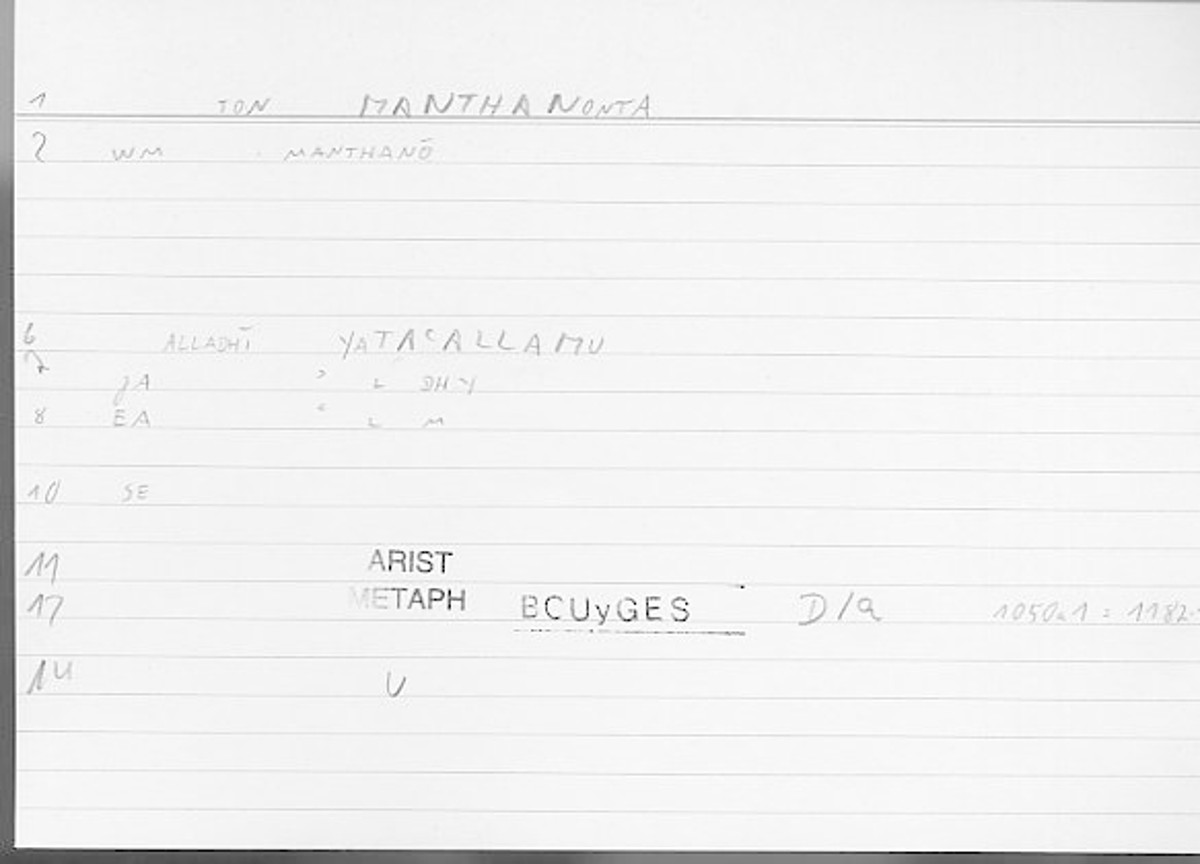 1 TON MANTHANONTA
2 WM MANTHANŌ
6 ALLADHĪ YATAʿALLAMU
7 JA ʾ L DHY
8 EA ʿ L M
10 SE
11 ARIST
12 METAPH BCUyGES D/a 1050a1 = 1182
14 U